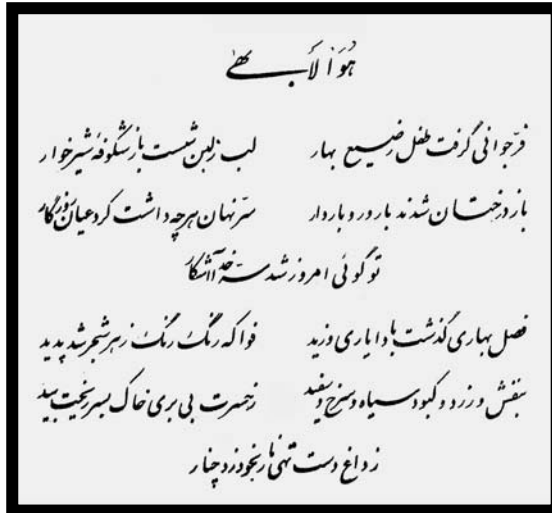 هو الأبهی
فرّ جوانی گرفت طفل رضیع بهار لب ز لبن شست باز شکوفهٔ شیرخوار
باز درختان شدند بارور و باردار سرّ نهان هرچه داشت کرد عیان روزگار
تو گوئی امروز شد سرّ خدا آشکار
فصل بهاری گذشت باد ایاری وزید فواکه رنگ رنگ ز هر شجر شد پدید
بنفش و زرد و کبود سیاه و سرخ و سفید ز حسرت بی بری خاک بسر ریخت بید
ز داغ دست تهی نار بخود زد چنار